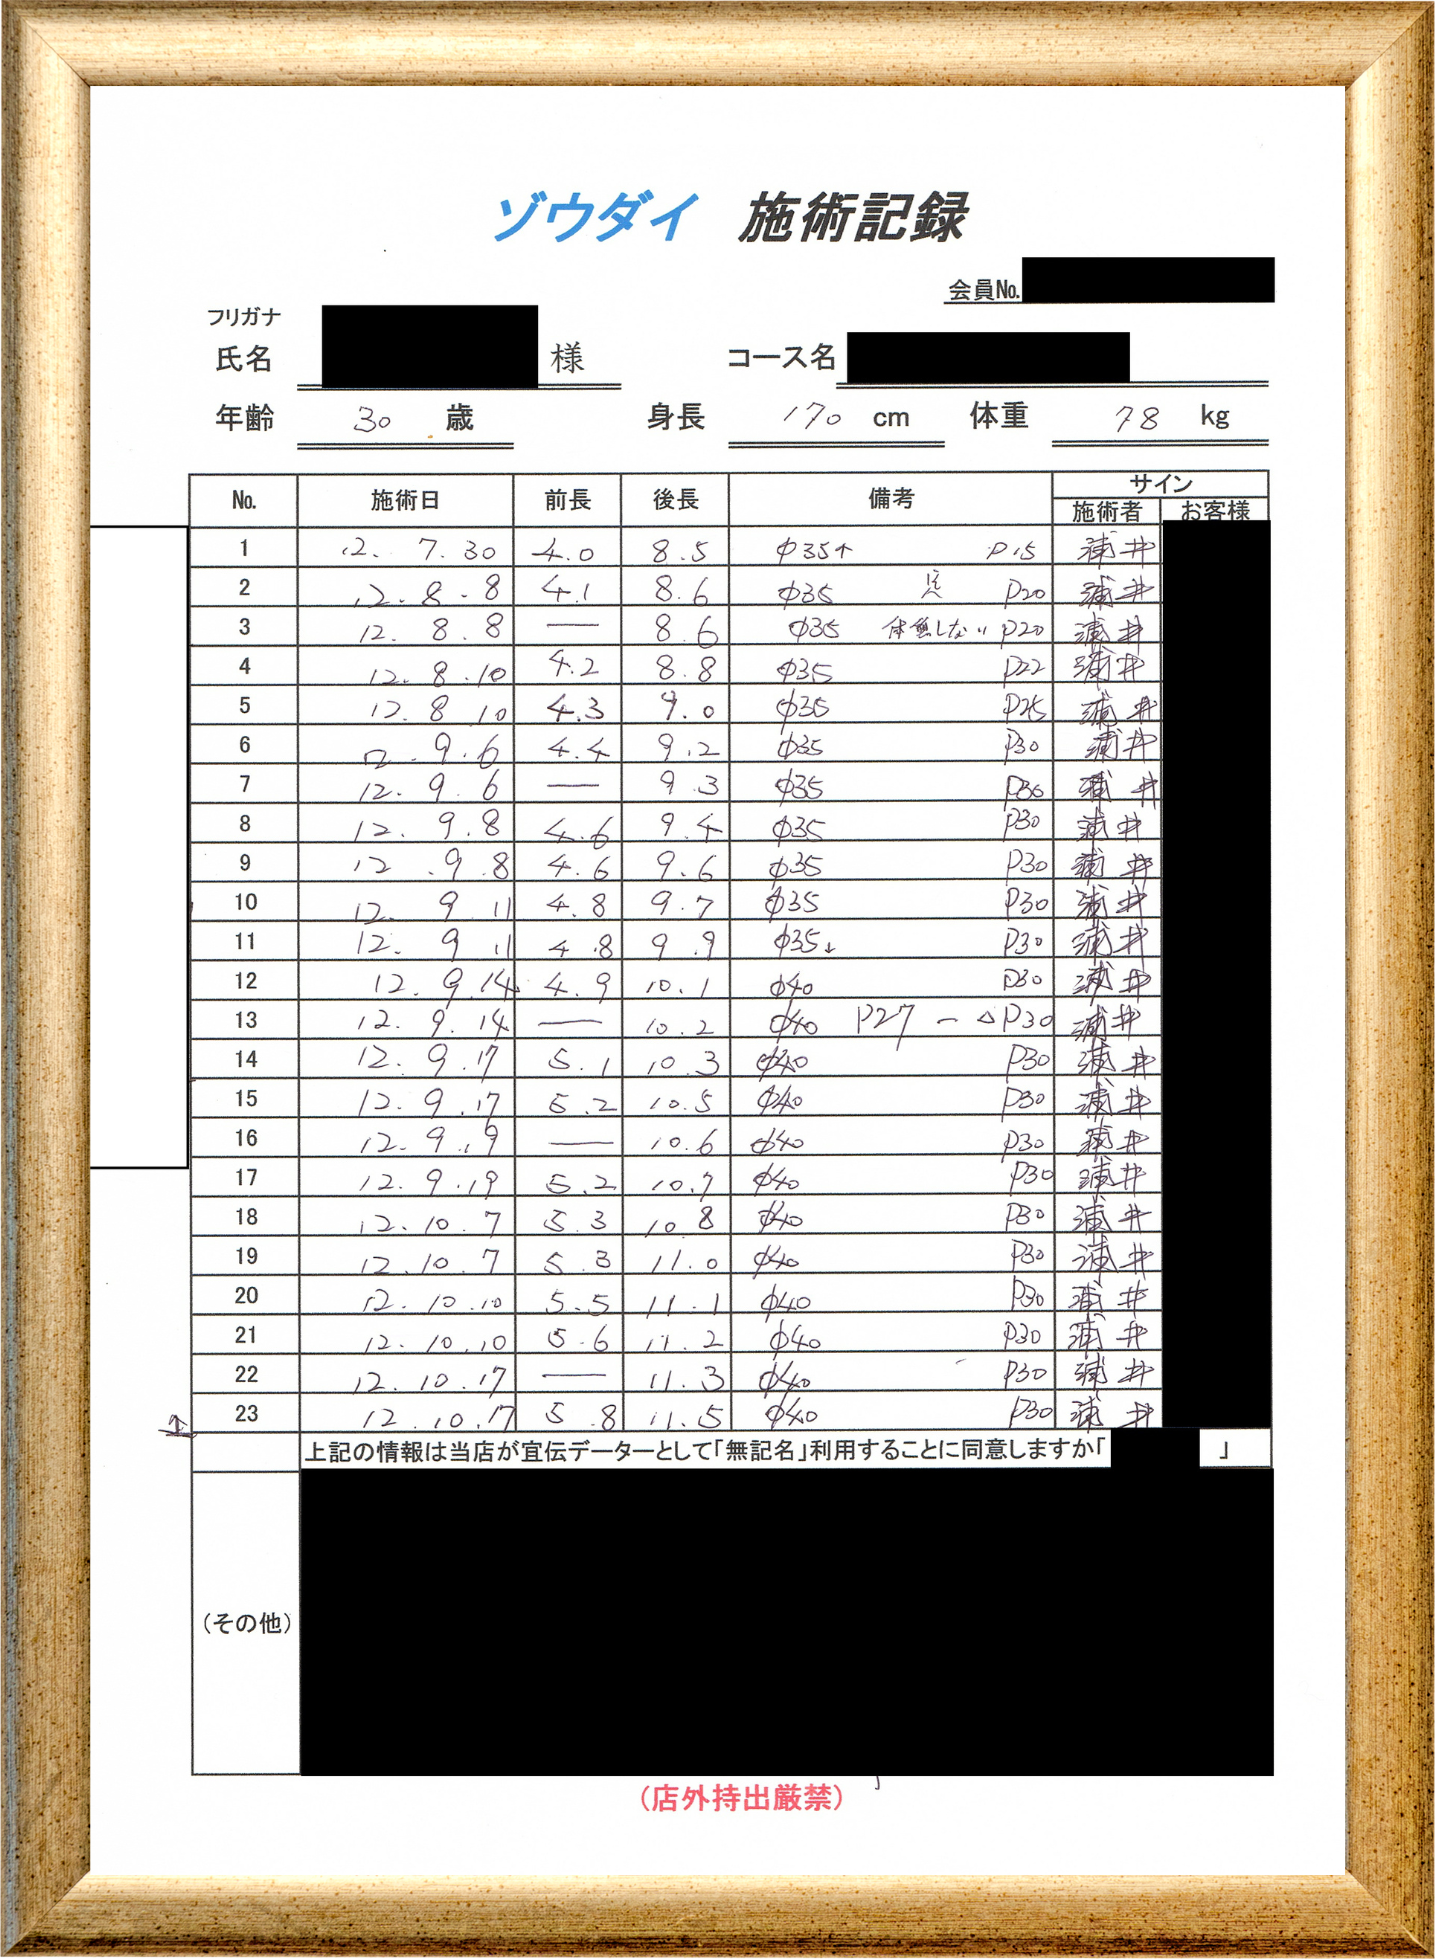 ゾウダイ 施術記録
会員No.
フリガナ
氏名 様 コース名
年齢 30 歳 身長 170 cm 体重 78 kg
No. 施術日 前長 後長 備考 サイン
施術者 お客様
1 12. 7. 30 4.0 8.5 φ35↑ P15 浦井
2 12. 8. 8 4.1 8.6 φ35 P20 浦井
3 12. 8. 8 — 8.6 φ35 しない P20 浦井
4 12. 8. 10 4.2 8.8 φ35 P22 浦井
5 12. 8 10 4.3 9.0 φ35 P25 浦井
6 12. 9. 6 4.4 9.2 φ35 P30 浦井
7 12. 9. 6 — 9.3 φ35 P30 浦井
8 12. 9. 8 4.6 9.4 φ35 P30 浦井
9 12 .9. 8 4.6 9.6 φ35 P30 浦井
10 12. 9 11 4.8 9.7 φ35 P30 浦井
11 12. 9 .11 4.8 9.9 φ35↓ P30 浦井
12 12. 9.14 4.9 10.1 φ40 P30 浦井
13 12. 9. 14 — 10.2 φ40 P27 — △ P30 浦井
14 12. 9. 17 5.1 10.3 φ40 P30 浦井
15 12. 9. 17 5.2 10.5 φ40 P30 浦井
16 12. 9. 19 — 10.6 φ40 P30 浦井
17 12. 9. 19 5.2 10.7 φ40 P30 浦井
18 12. 10. 7 5.3 10.8 φ40 P30 浦井
19 12. 10. 7 5.3 11.0 φ40 P30 浦井
20 12. 10. 10 5.5 11.1 φ40 P30 浦井
21 12. 10. 10 5.6 11.2 φ40 P30 浦井
22 12. 10. 17 — 11.3 φ40 P30 浦井
23 12. 10. 17 5.8 11.5 φ40 P30 浦井
上記の情報は当店が宣伝データーとして「無記名」利用することに同意しますか「 」
（その他）
（店外持出厳禁）